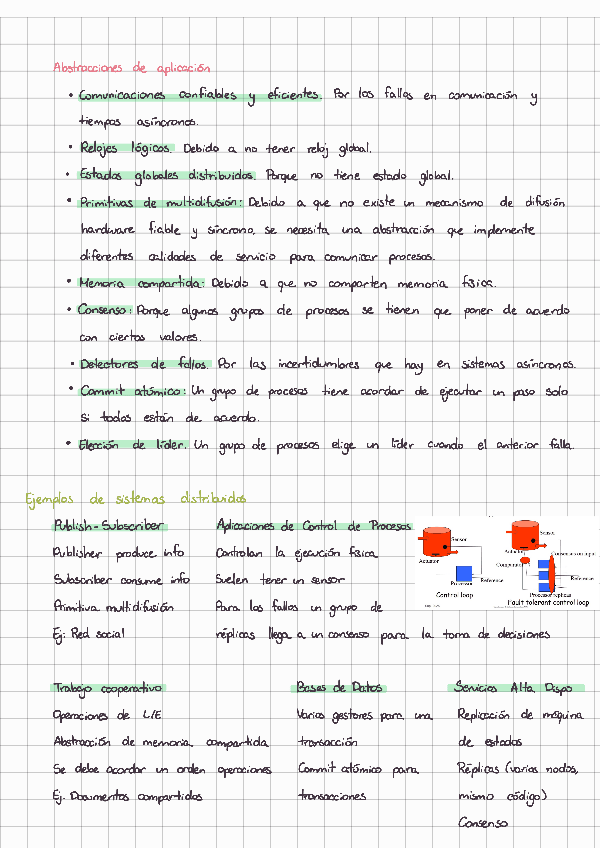 Abstracciones de aplicación
• Comunicaciones confiables y eficientes. Por los fallos en comunicación y
tiempos asíncronos.
• Relojes lógicos. Debido a no tener reloj global.
• Estados globales distribuidos. Porque no tiene estado global.
• Primitivas de multidifusión: Debido a que no existe un mecanismo de difusión
hardware fiable y síncrono, se necesita una abstracción que implemente
diferentes calidades de servicio para comunicar procesos.
• Memoria compartida: Debido a que no comparten memoria física.
• Consenso: Porque algunos grupos de procesos se tienen que poner de acuerdo
con ciertos valores.
• Detectores de fallos. Por las incertidumbres que hay en sistemas asíncronos.
• Commit atómico: Un grupo de procesos tiene acordar de ejecutar un paso solo
si todos están de acuerdo.
• Elección de líder. Un grupo de procesos elige un líder cuando el anterior falla.
Ejemplos de sistemas distribuidos
Publish-Subscriber
Publisher produce info
Subscriber consume info
Primitiva multidifusión
Ej: Red social
Aplicaciones de Control de Procesos
Controlan la ejecución física
Suelen tener un sensor
Para los fallos un grupo de
réplicas llega a un consenso para la toma de decisiones
Sensor
Actuator
Processor
Reference
Control loop
Sensor
Actuator
Consensus on input
Computer
Reference
Processor replicas
Fault tolerant control loop
Trabajo cooperativo
Operaciones de L/E
Abstracción de memoria compartida
Se debe acordar un orden operaciones
Ej. Documentos compartidos
Bases de Datos
Varios gestores para una
transacción
Commit atómico para
transacciones
Servicios Alta Dispo
Replicación de máquina
de estados
Réplicas (varios nodos,
mismo código)
Consenso